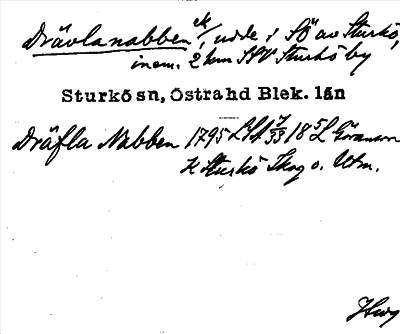 Drävlanabben ek/, udde i SÖ av Sturkö,
inom. 2 km SSV Sturkö by
Sturkö sn, Östra hd Blek. län
Dräfla Nabben 1795 LSA
K Sturkö Skog o. Utm.